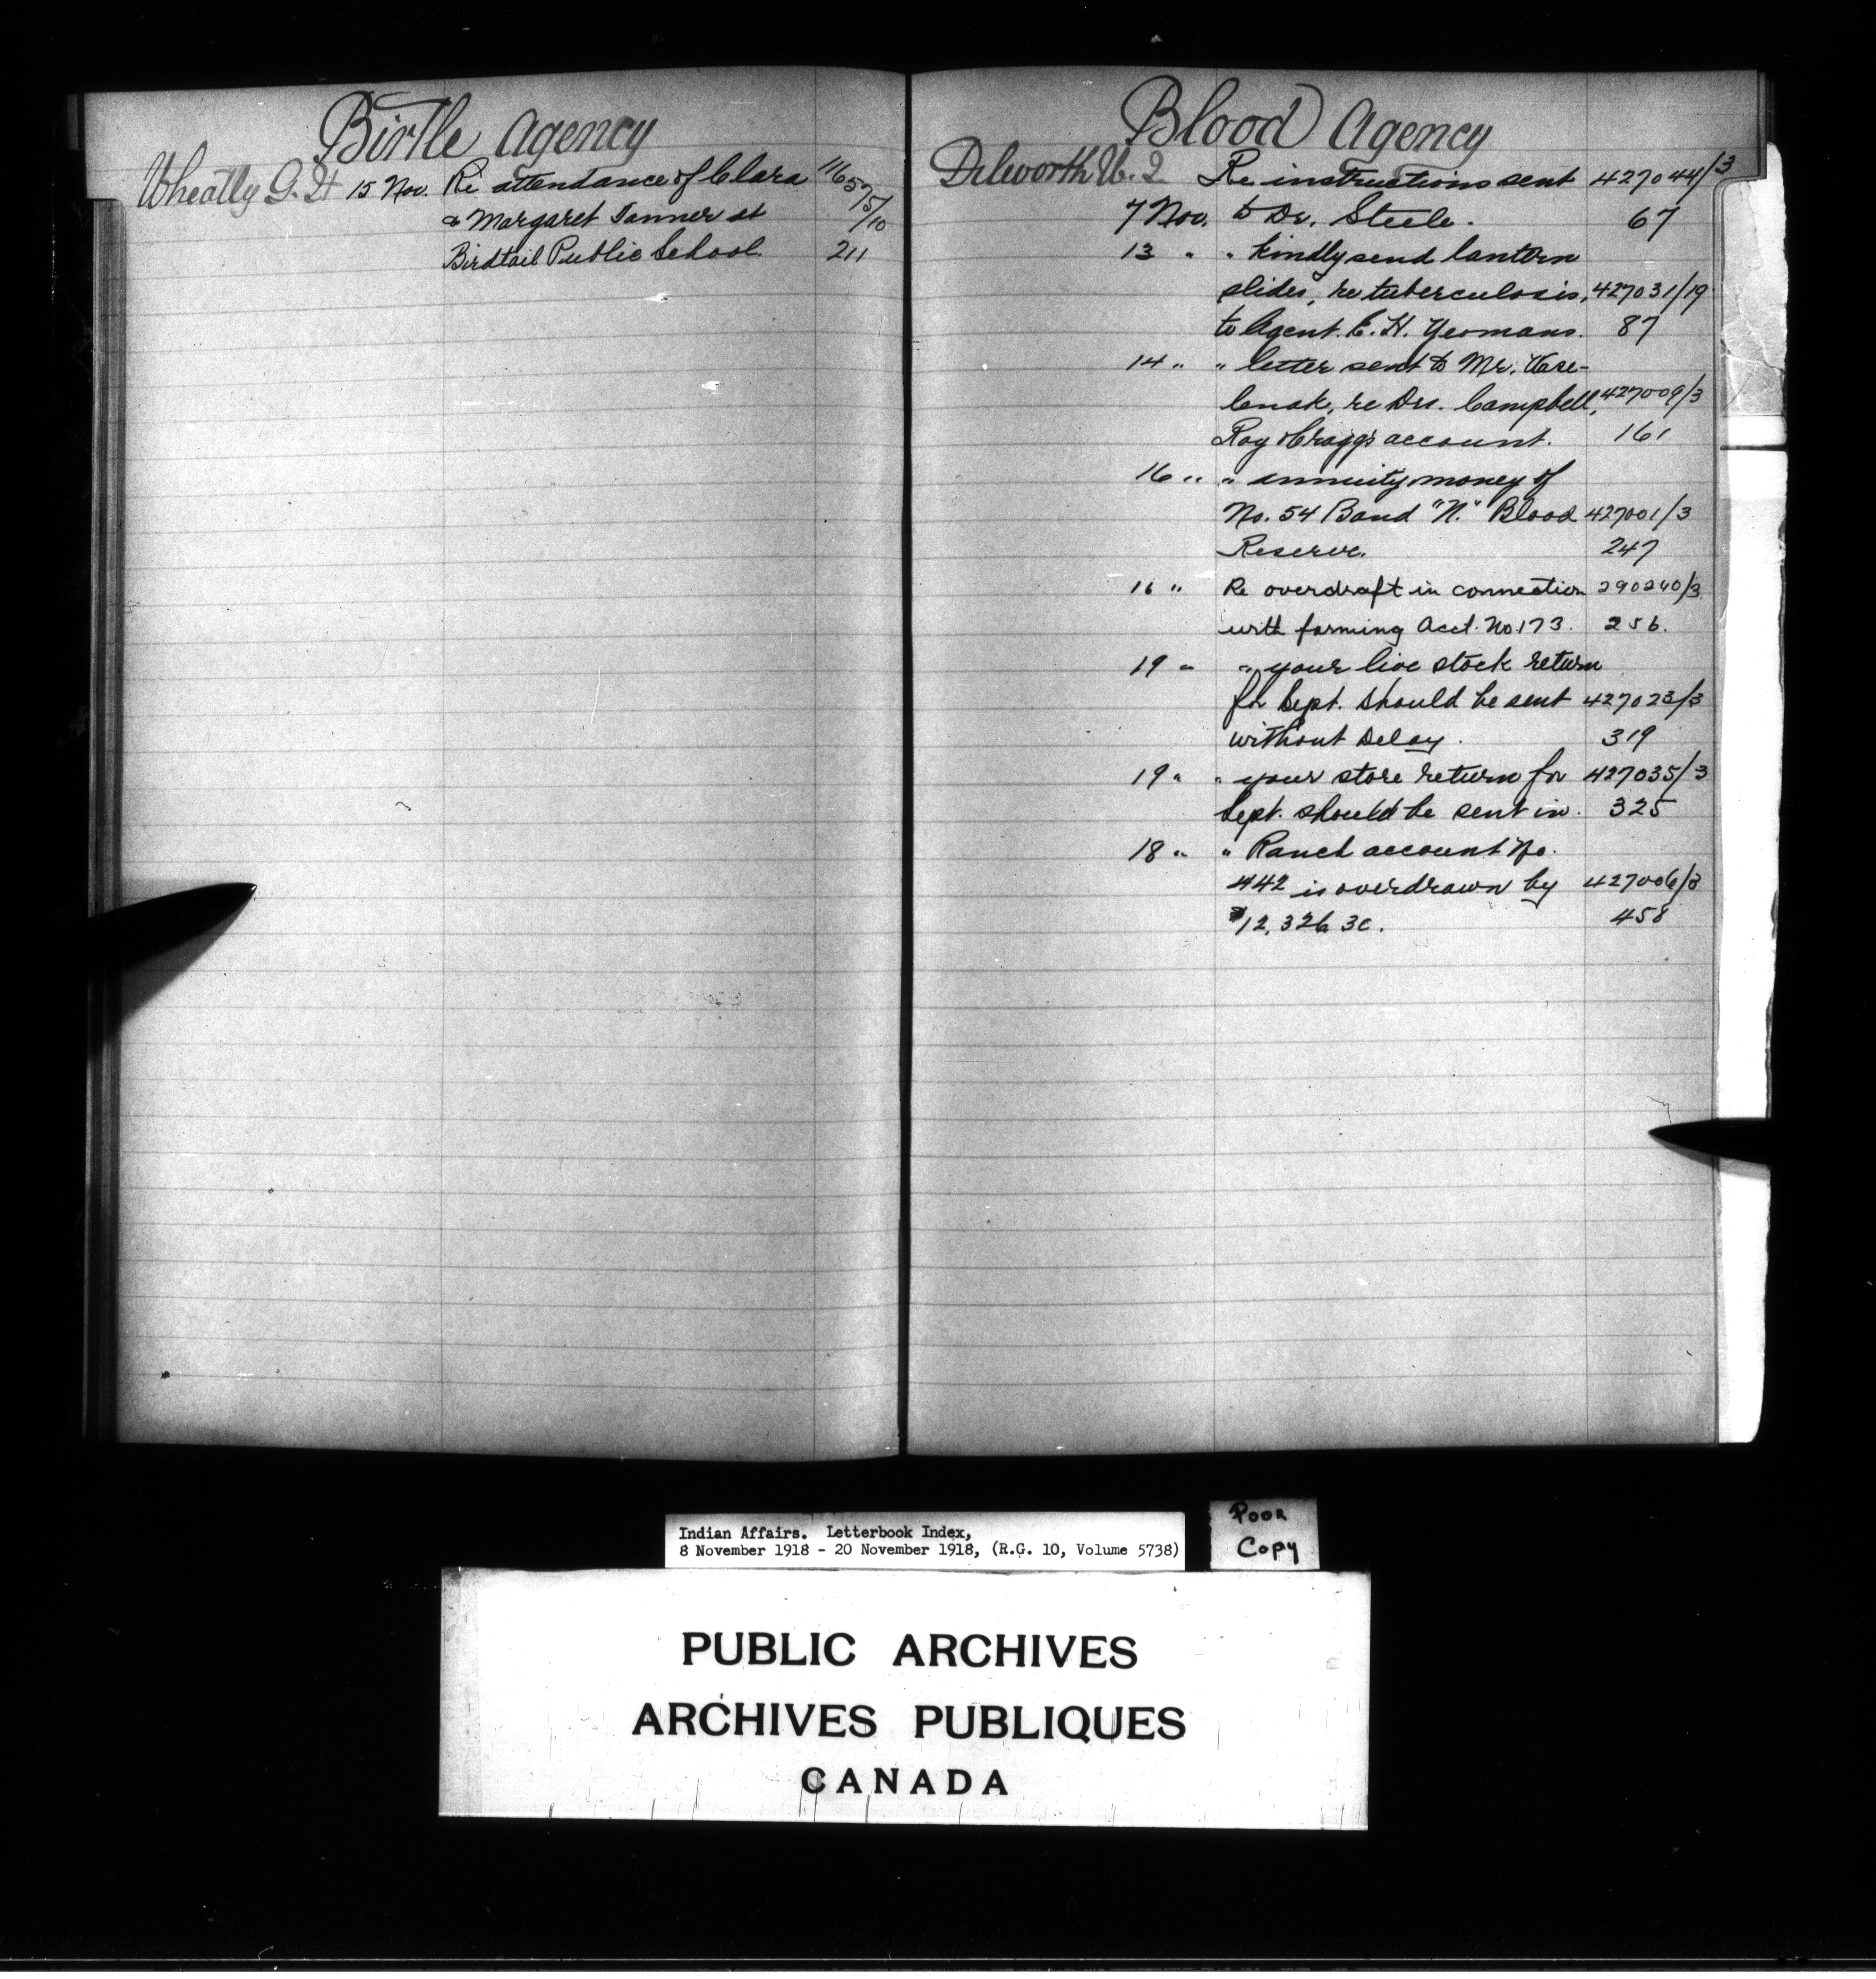 Birtle Agency
Wheatly G. H 15 Nov. Re attendance of Clara 116575/10
& Margaret Tanner at
Birdtail Public School. 211
Blood Agency
Dilworth W. J. Re instructions sent 427044/3
7 Nov. to Dr. Steele. 67
13 " " kindly send lantern
slides, re tuberculosis, 427031/19
to Agent. E. H. Yeomans. 87
14 " " letter sent to Mr.
re Drs. Campbell, 427009/3
Roy & Cragg's account. 161
16 " " annuity money of
No. 54 Band "N." Blood 427001/3
Reserve. 247
16 " Re overdraft in connection 290240/3
with farming Acct. No. 173. 256.
19 " " your live stock return
for Sept. should be sent 427023/3
without delay. 319
19 " " your store return for 427035/3
Sept. should be sent in. 325
18 " " Ranch account No.
442 is overdrawn by 427006/3
$12,326.30. 458
Indian Affairs. Letterbook Index,
8 November 1918 - 20 November 1918, (R.G. 10, Volume 5738)
Poor
Copy
PUBLIC ARCHIVES
ARCHIVES PUBLIQUES
CANADA